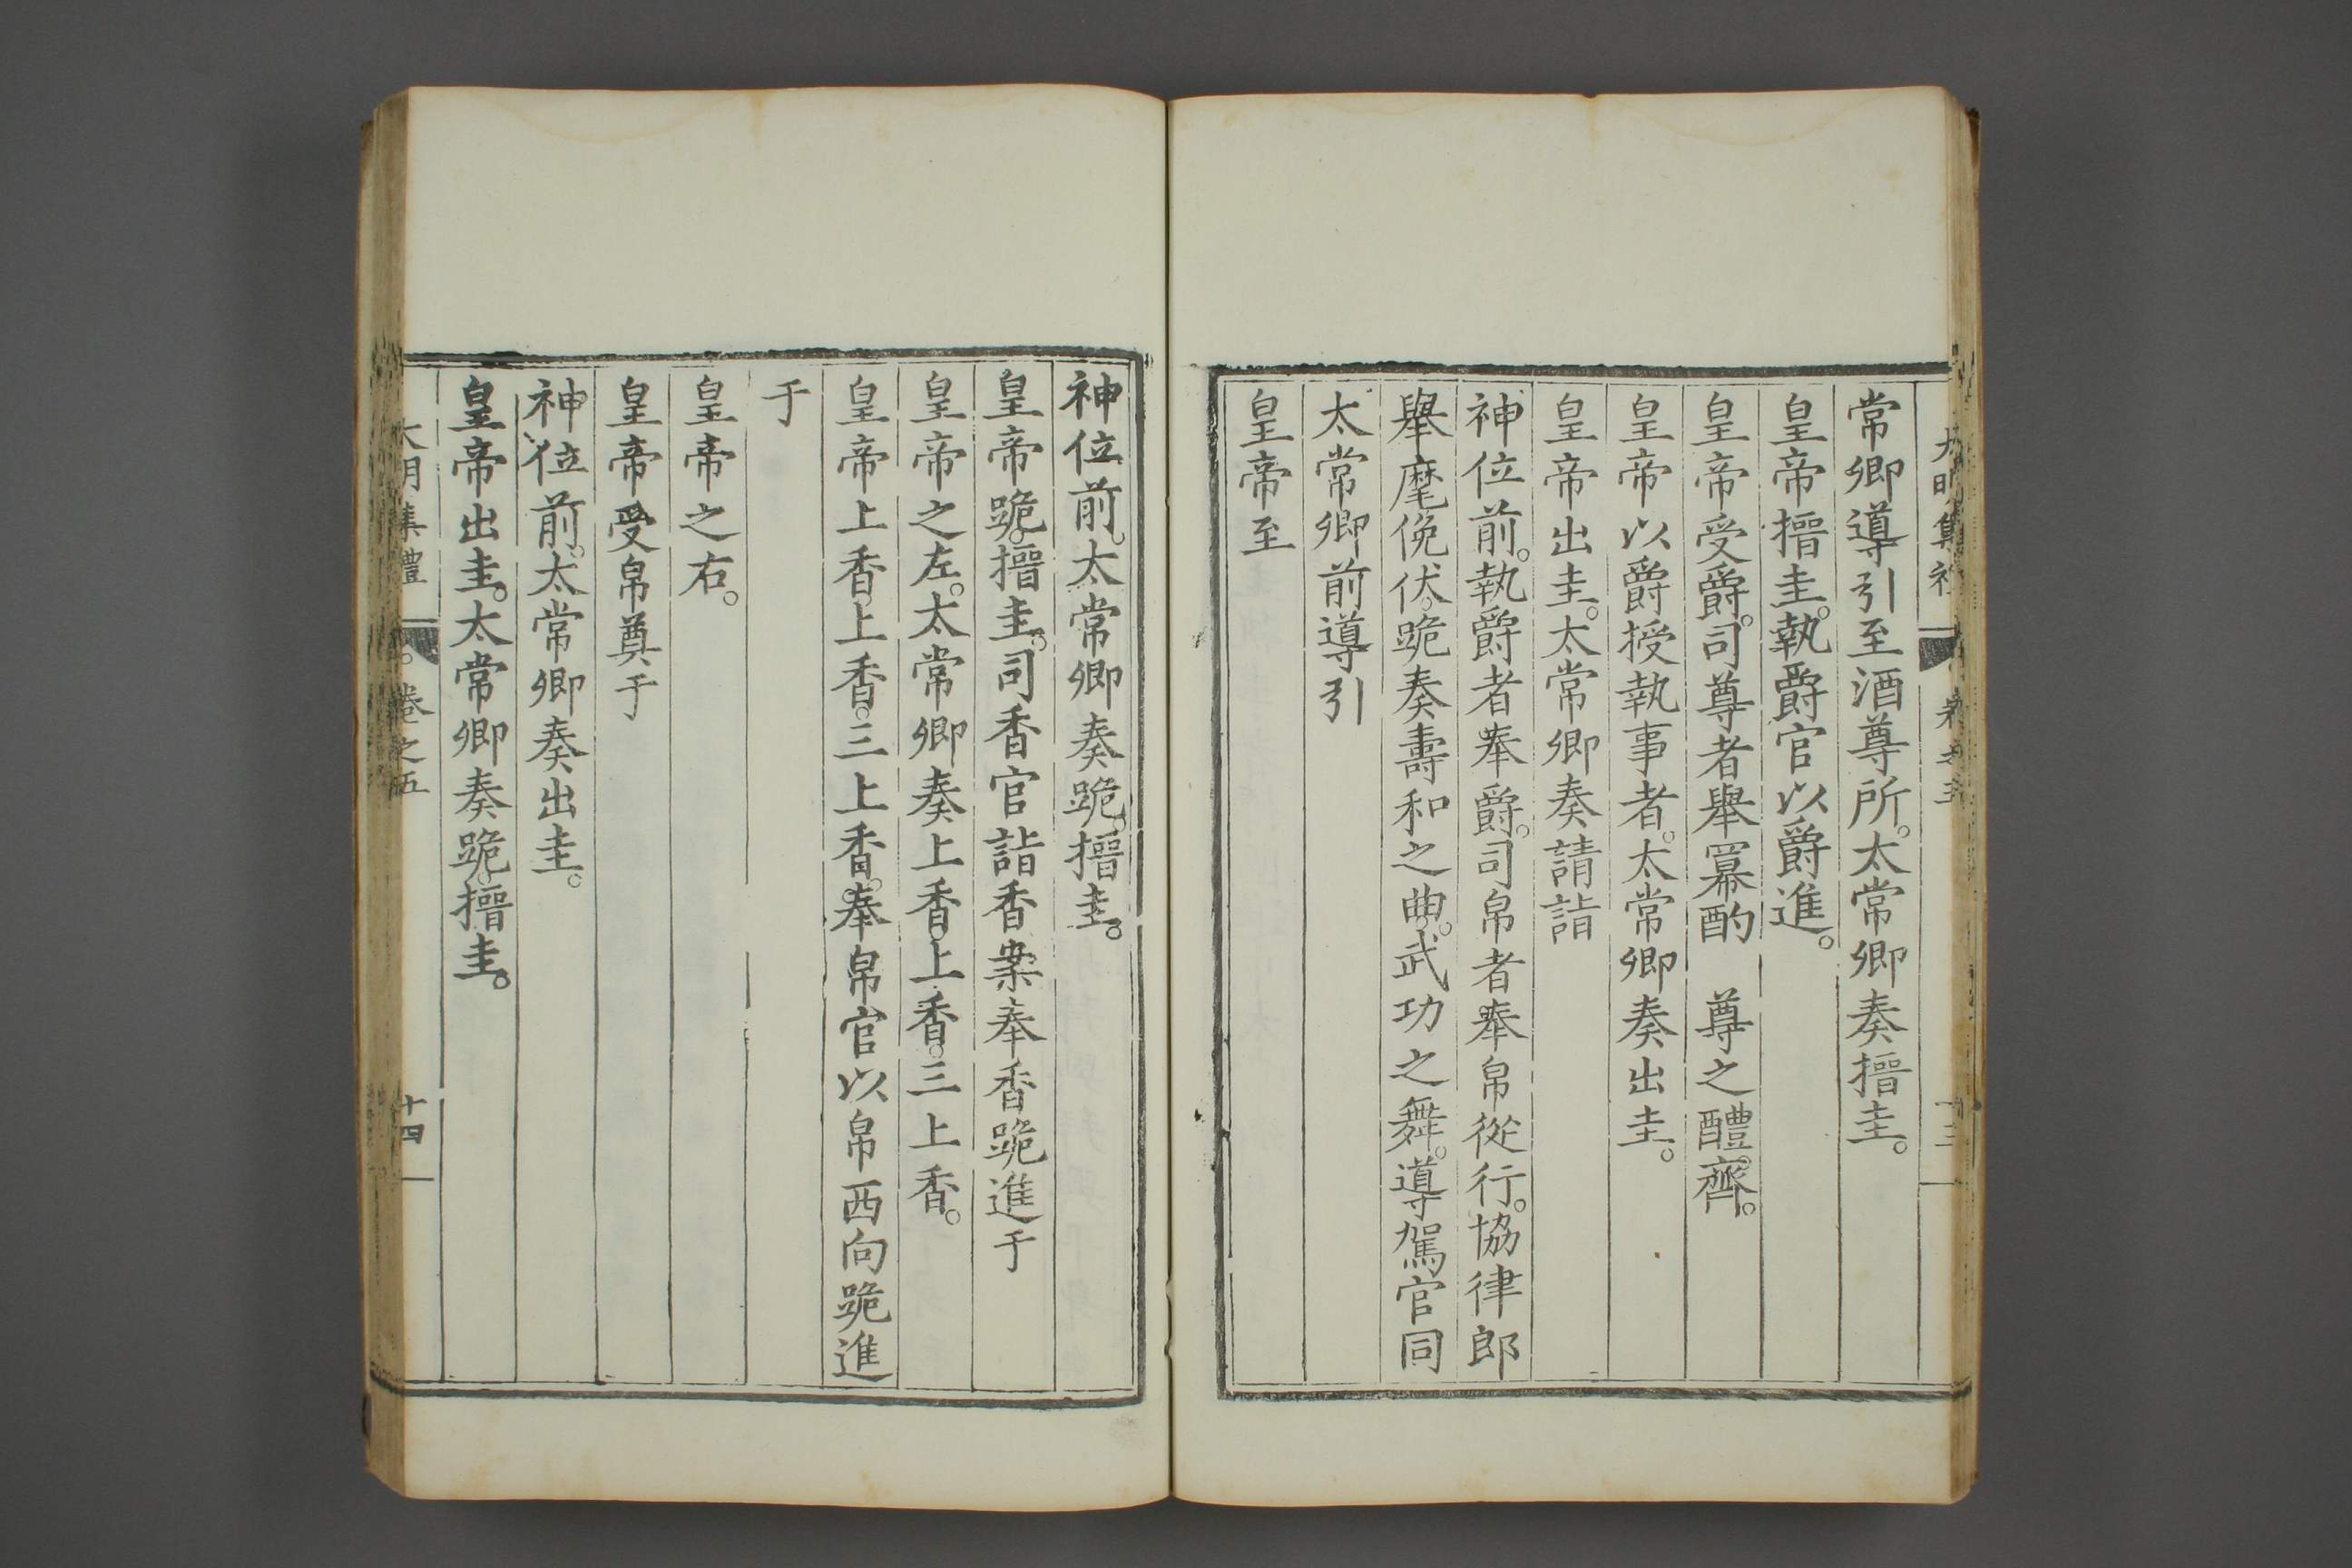 大明集禮 卷之五 十三
常卿導引至酒尊所。太常卿奏搢圭。
皇帝搢圭。執爵官以爵進。
皇帝受爵。司尊者舉冪酌　尊之醴。齊。
皇帝以爵授執事者。太常卿奏出圭。
皇帝出圭。太常卿奏請詣
神位前。執爵者奉爵。司帛者奉帛從行。協律郎
舉麾俛伏。跪奏壽和之曲。武功之舞。導駕官同
太常卿前導引
皇帝至
神位前。太常卿奏跪。搢圭。
皇帝跪。搢圭。司香官詣香案奉香跪進于
皇帝之左。太常卿奏上香。上香。三上香。
皇帝上香。上香。三上香。奉帛官以帛西向跪進
于
皇帝之右。
皇帝受帛奠于
神位前。太常卿奏出圭。
皇帝出圭。太常卿奏跪。搢圭。
大明集禮 卷之五 十四